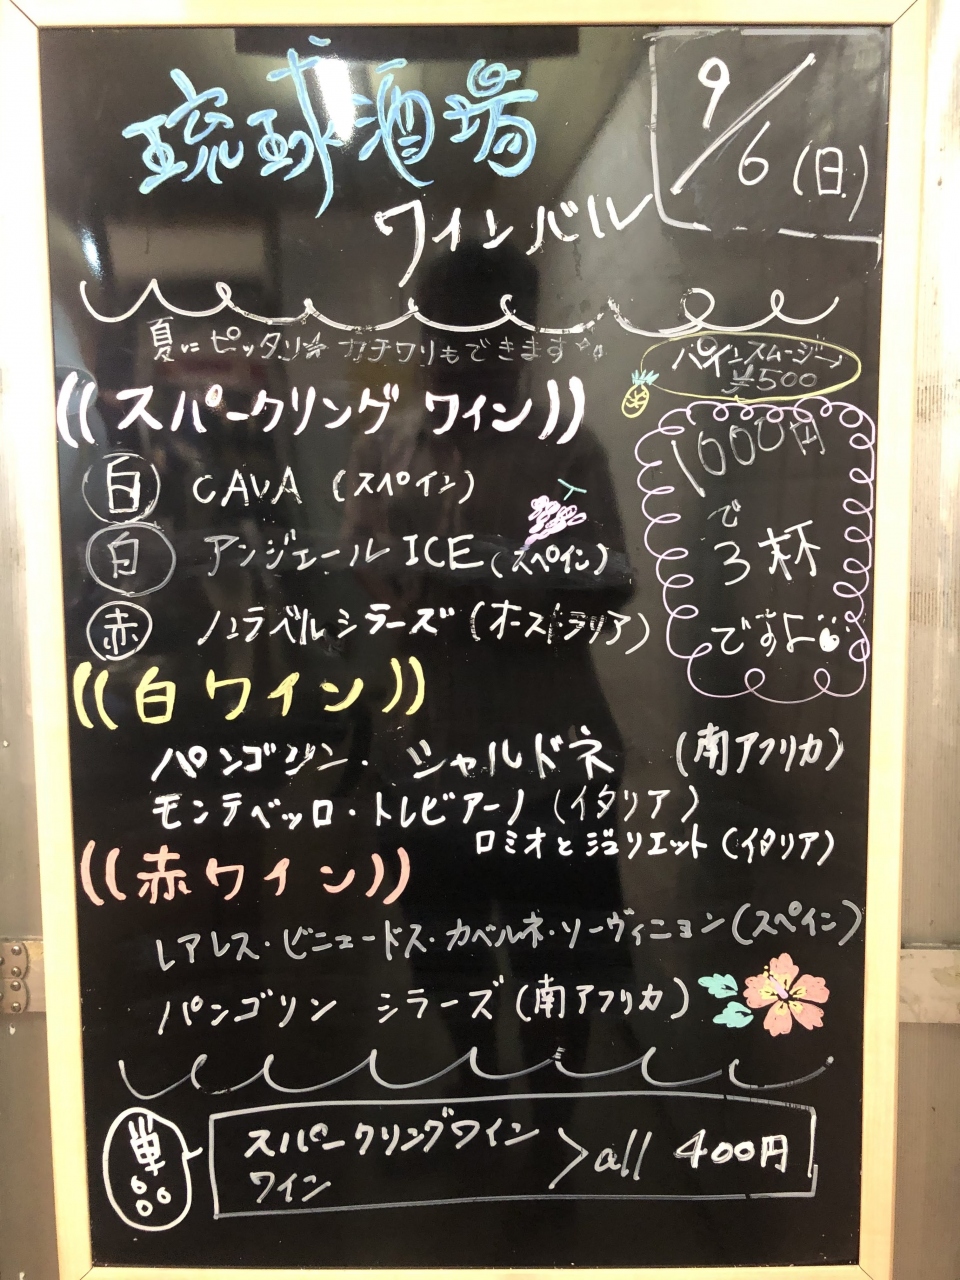 琉球酒場
9/6(日)
ワインバル
夏にピッタリ☆ カチワリもできます☆
パインスムージー
¥500
((スパークリング ワイン))
1000円
で
3杯
ですよ
白 CAVA (スペイン)
白 アンジェール ICE (スペイン)
赤 ノーラベル シラーズ (オーストラリア)
((白ワイン))
パンゴリン・シャルドネ (南アフリカ)
モンテベッロ・トレビアーノ (イタリア)
ロミオとジュリエット (イタリア)
((赤ワイン))
レアレス・ビニェードス・カベルネ・ソーヴィニヨン(スペイン)
パンゴリン シラーズ (南アフリカ)
単品
スパークリングワイン
ワイン
>all 400円